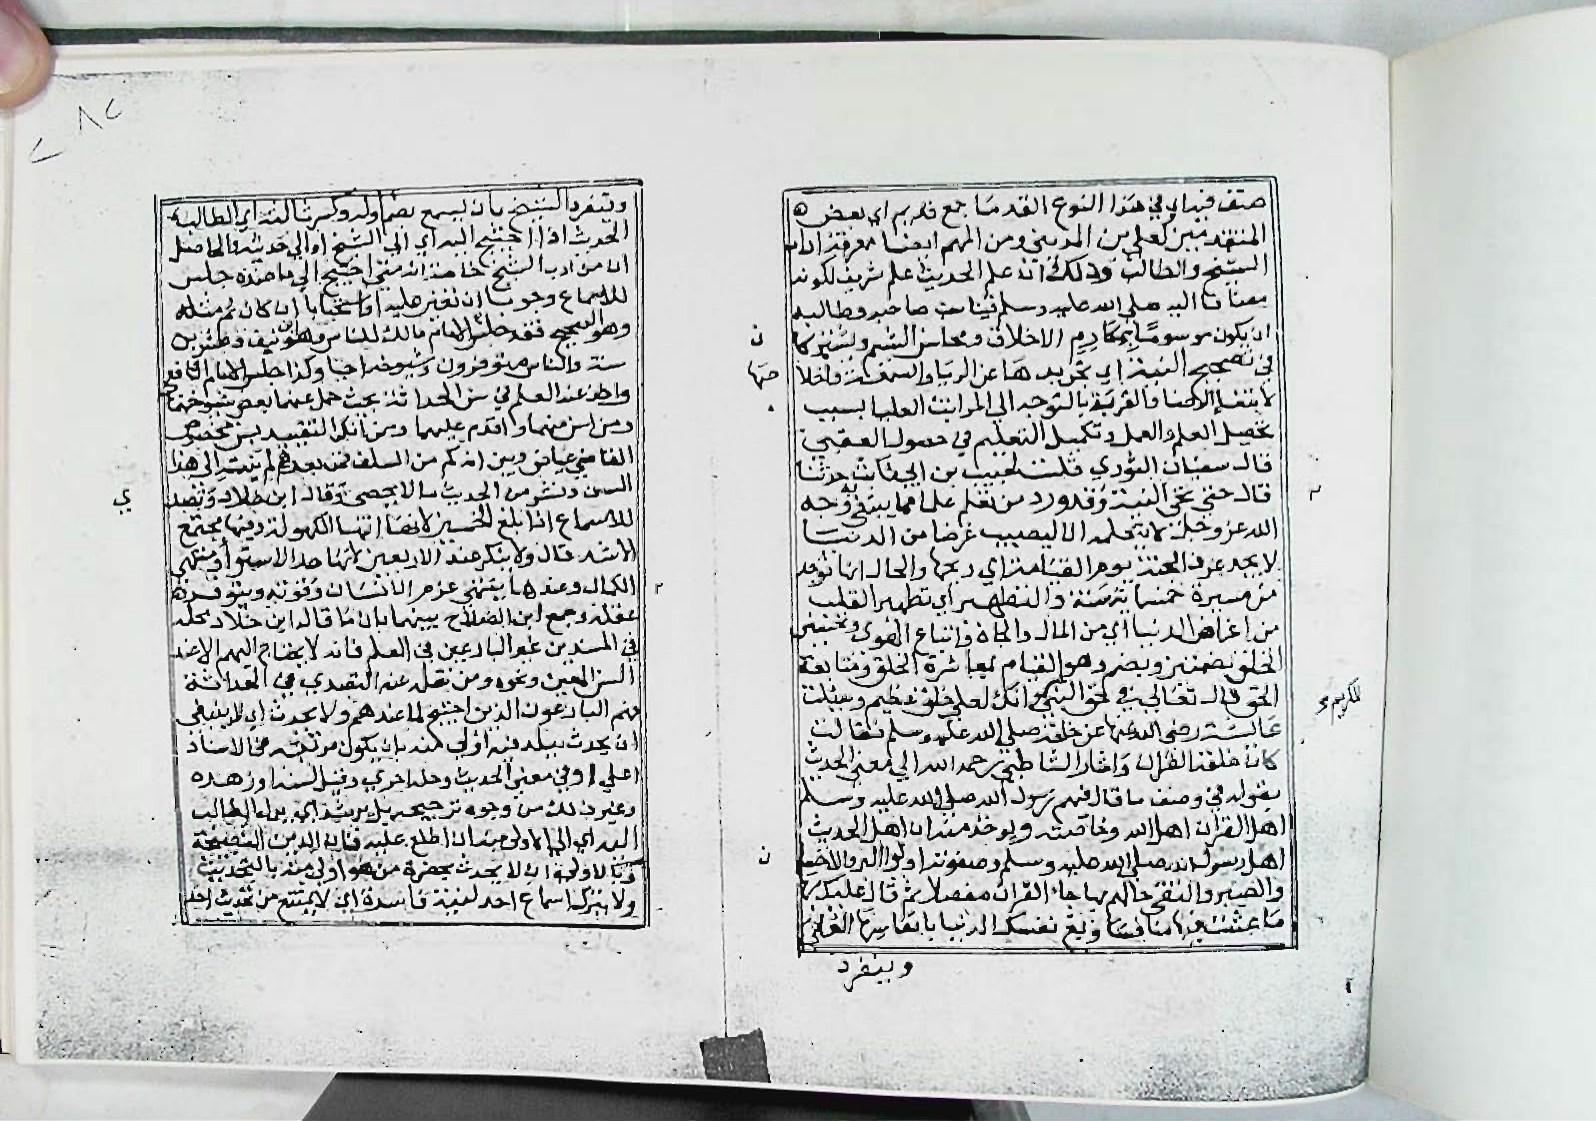 صنف فيه اي في هذا النوع القدما جمع قديم اي بعض
المتقدمين كعلي بن المديني ومن المهم ايضا معرفة اداب
الشيخ والطالب وذلك ان علم الحديث علم شريف لكونه
مضافا اليه صلى الله عليه وسلم فيناسب صاحبه وطالبه
ان يكون موسوما بمكارم الاخلاق ومحاسن الشيم ويشتركا
في تصحيح النية اي تجريدها عن الريا والسمعة
بالتوجه الى المراتب العليا بسبب
تحصيل العلم والعمل وتكميل التعليم في حصول العقبى
قال سفيان الثوري قلت لحبيب بن ابي ثابت حدثنا
قال حتى تجي النية وقد ورد من تعلم علما مما يبتغى به وجه
الله عز وجل لا يتعلمه الا ليصيب غرضا من الدنيا
لا يجد عرف الجنة يوم القيامة اي ريحها والحال انها توجد
من مسيرة خمسماية سنة والتطهير اي تطهير القلب
من اغراض الدنيا اي من المال والجاه واتباع الهوى وتحسين
الخلق بضمتين ويضم وهو القيام بمعاشرة الخلق ومتابعة
الحق قال تعالى في حق النبي انك لعلى خلق عظيم وسئلت
عائشة رضي الله عنها عن خلقه صلى الله عليه وسلم فقالت
كان خلقه القران واشار الشاطبي رحمه الله الى معنى الحديث
بقوله في وصف ما قال فيهم رسول الله صلى الله عليه وسلم
اهل القران اهل الله وخاصته ويوخذ منه ان اهل الحديث
اهل رسول الله صلى الله عليه وسلم وصفوته اولوا البر والاحسان
والصبر والتقى حلاهم بها جاء القران مفصلا ثم قال عليك بها
ما عشت فيها منافسا وبع نفسك الدنيا بانفاسها العلى
وينفرد
الكريم
وينفرد الشيخ بان يسمع بضم اوله وكسر ثالثه اي الطالب
الحديث اذا احتيج اليه اي الى الشيخ او الى حديثه والحاصل
ان من ادب الشيخ خاصة انه متى احتيج الى ما عنده جلس
للاسماع وجوبا ان تعين عليه او استحبابا ان كان ثم مثله
وهو الصحيح فقد جلس الامام مالك للناس وهو ابن نيف وعشرين
سنة والناس متوفرون وشيوخه احيا وكذا جلس الامام الشافعي
واخذ عنه العلم في سن الحداثة بحيث حمل عنهما بعض شيوخهما
ومن اسن منهما واقدم عليهما ومن انكر التقييد بسن مخصوص
القاضي عياض وبين انه كم من السلف فمن بعدهم لم ينته الى هذا
السن ونشر من الحديث ما لا يحصى وقال ابن خلاد وتصد
للاسماع اذا بلغ الخمسين لانها انتها الكهولة وفيها مجتمع
الاشد قال ولا ينكر عند الاربعين لانها حد الاستوا ومنتهى
الكمال وعندها ينتهي عزم الانسان وقوته ويتوفر
عقله وجمع ابن الصلاح بينهما بان ما قاله ابن خلاد محله
في المسندين غير البارعين في العلم فانه لا يحتاج اليهم الا عند
السن المعين ونحوه ومن نقل عنه التصدي في الحداثة
فهم البارعون الذين احتيج لما عندهم ولا يحدث اي لا ينبغي
ان يحدث ببلد فيه اولى منه بان يكون مرتبته في الاسناد
اعلى او في معنى الحديث وحله احرى وقيل لسنه او زهده
وغير ذلك من وجوه ترجيحه بل يرشد اي يدل الطالب
اليه اي الى الاولى منه ان اطلع عليه فان الدين النصيحة
وبالاولى ان لا يحدث بحضرة من هو اولى منه بالتحديث
ولا يترك اسماع احد لنية فاسدة اي لا يمتنع من تحديث احد